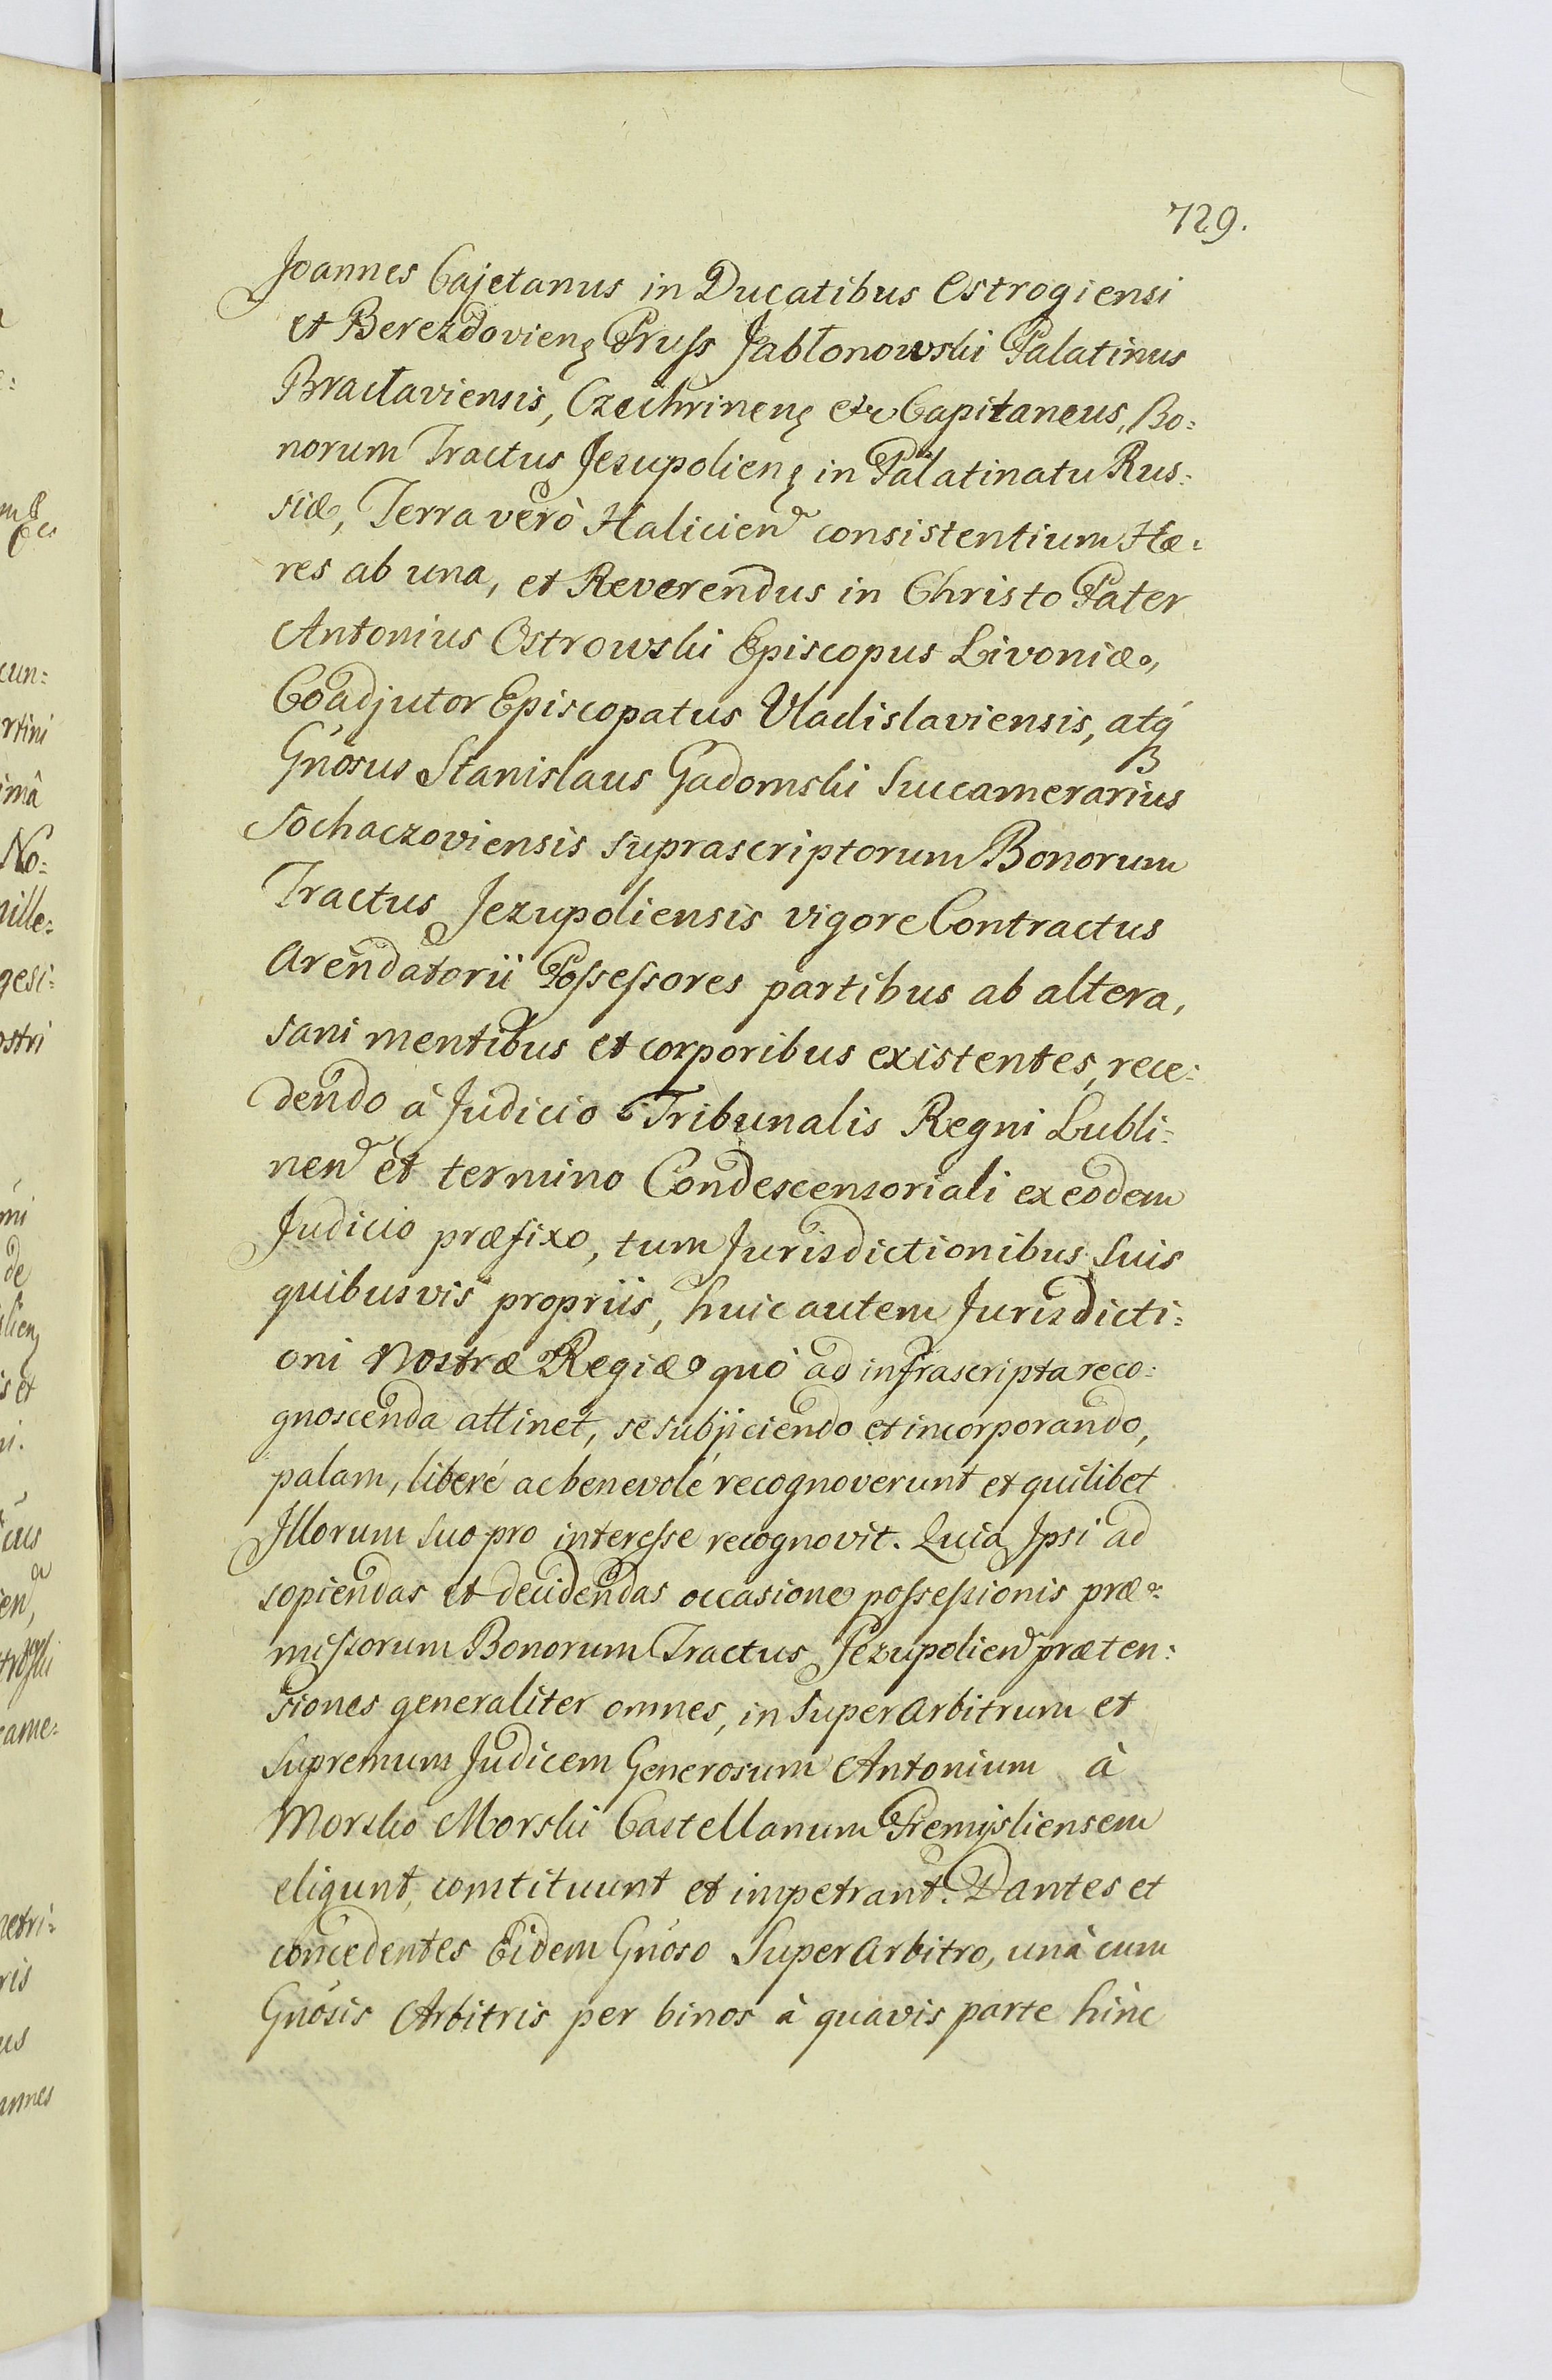 729.
Joannes Cajetanus in Ducatibus Ostrogiensi
et Berezdovienȩ Pruſs Jabłonowski Palatinus
Bracłaviensis, Czechrinenȩ etc Capitaneus, Bo:
norum Tractus Jezupolienȩ in Palatinatu Rus:
siæ, Terra verò Halicien consistentium Hæ:
res ab una, et Reverendus in Christo Pater
Antonius Ostrowski Episcopus Livoniæ,
Coadjutor Episcopatus Vladislaviensis, atq́
Gńosus Stanislaus Gadomski Succamerarius
Sochaczoviensis suprascriptorum Bonorum
Tractus Jezupoliensis vigore Contractus
Arendatorii Poſseſsores partibus ab altera,
sani mentibus et corporibus existentes, rece:
dendo à Judicio Tribunalis Regni Lubli:
nen et termino Condescensoriali ex eodem
Judicio præfixo, tum Jurisdictionibus Suis
quibusvis propriis, huic autem Jurisdicti:
oni Nostræ Regiæ quò ad infrascripta reco:
gnoscenda attinet, se subjiciendo et incorporando,
palam, liberé ac benevolé recognoverunt et quilibet
Illorum suo pro intereſse recognovit. Quia Ipsi ad
sopiendas et decidendas occasione poſseſsionis præ:
miſsorum Bonorum Tractus Jezupolien præten:
siones generaliter omnes, in Superarbitrum et
Supremum Judicem Generosum Antonium à
Morsko Morski Castellanum Premisliensem
eligunt, constituunt et impetrant. Dantes et
concedentes Eidem Gńoso Superarbitro, unà cum
Gńosis Arbitris per binos à quavis parte hinc